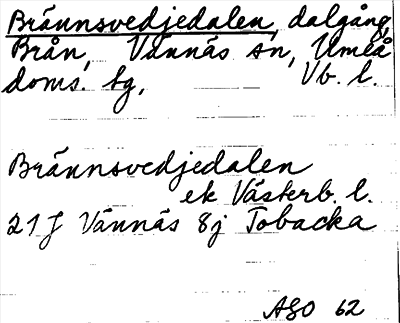 Brännsvedjedalen, dalgång,
Brån, Vännäs sn, Umeå
doms. tg, Vb. l.
Brännsvedjedalen
ek Västerb. l.
21 J Vännäs 8j Tobacka
ASO 62